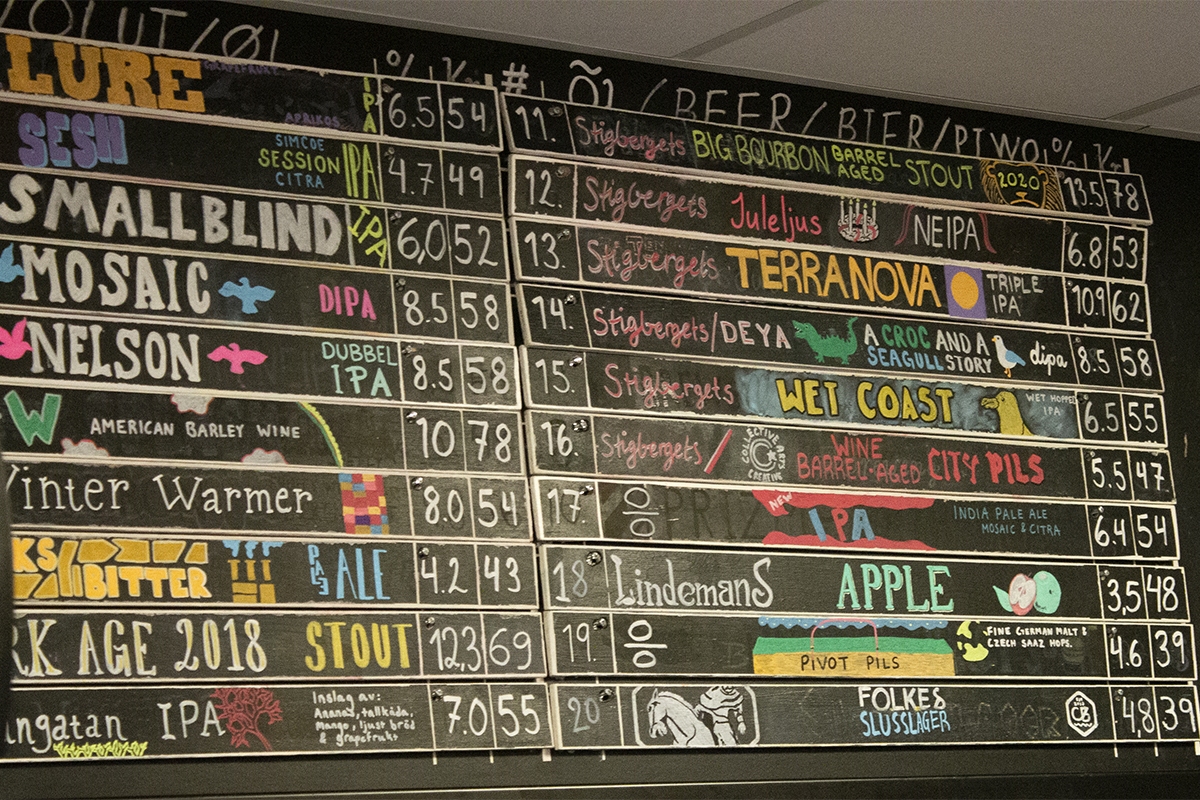 OLUT/ØL % Kr
LURE GRAPEFRUKT APRIKOS IPA 6.5 54
SESH SIMCOE SESSION CITRA IPA 4.7 49
SMALLBLIND IPA 6,0 52
MOSAIC DIPA 8.5 58
NELSON DUBBEL IPA 8.5 58
W AMERICAN BARLEY WINE 10 78
Winter Warmer 8.0 54
KS BITTER ALE 4.2 43
RK AGE 2018 STOUT 12,3 69
ngatan IPA Inslag av: Ananas, tallkåda, Mango, ljust bröd & grapefrukt 7.0 55
# ÕL/BEER/BIER/PIWO % Kr
11. Stigbergets BIG BOURBON BARREL AGED STOUT 2020 13.5 78
12. Stigbergets Juleljus NEIPA 6.8 53
13. Stigbergets TERRANOVA TRIPLE IPA 10.9 62
14. Stigbergets/DEYA A CROC AND A SEAGULL STORY dipa 8.5 58
15. Stigbergets WET COAST WET HOPPED IPA 6.5 55
16. Stigbergets/ COLLECTIVE ARTS CREATIVE WINE BARREL-AGED CITY PILS 5.5 47
17. NEW IPA INDIA PALE ALE MOSAIC & CITRA 6.4 54
18 LindemanS APPLE 3,5 48
19. PIVOT PILS FINE GERMAN MALT & CZECH SAAZ HOPS. 4.6 39
20 FOLKES SLUSSLAGER CB 4,8 39